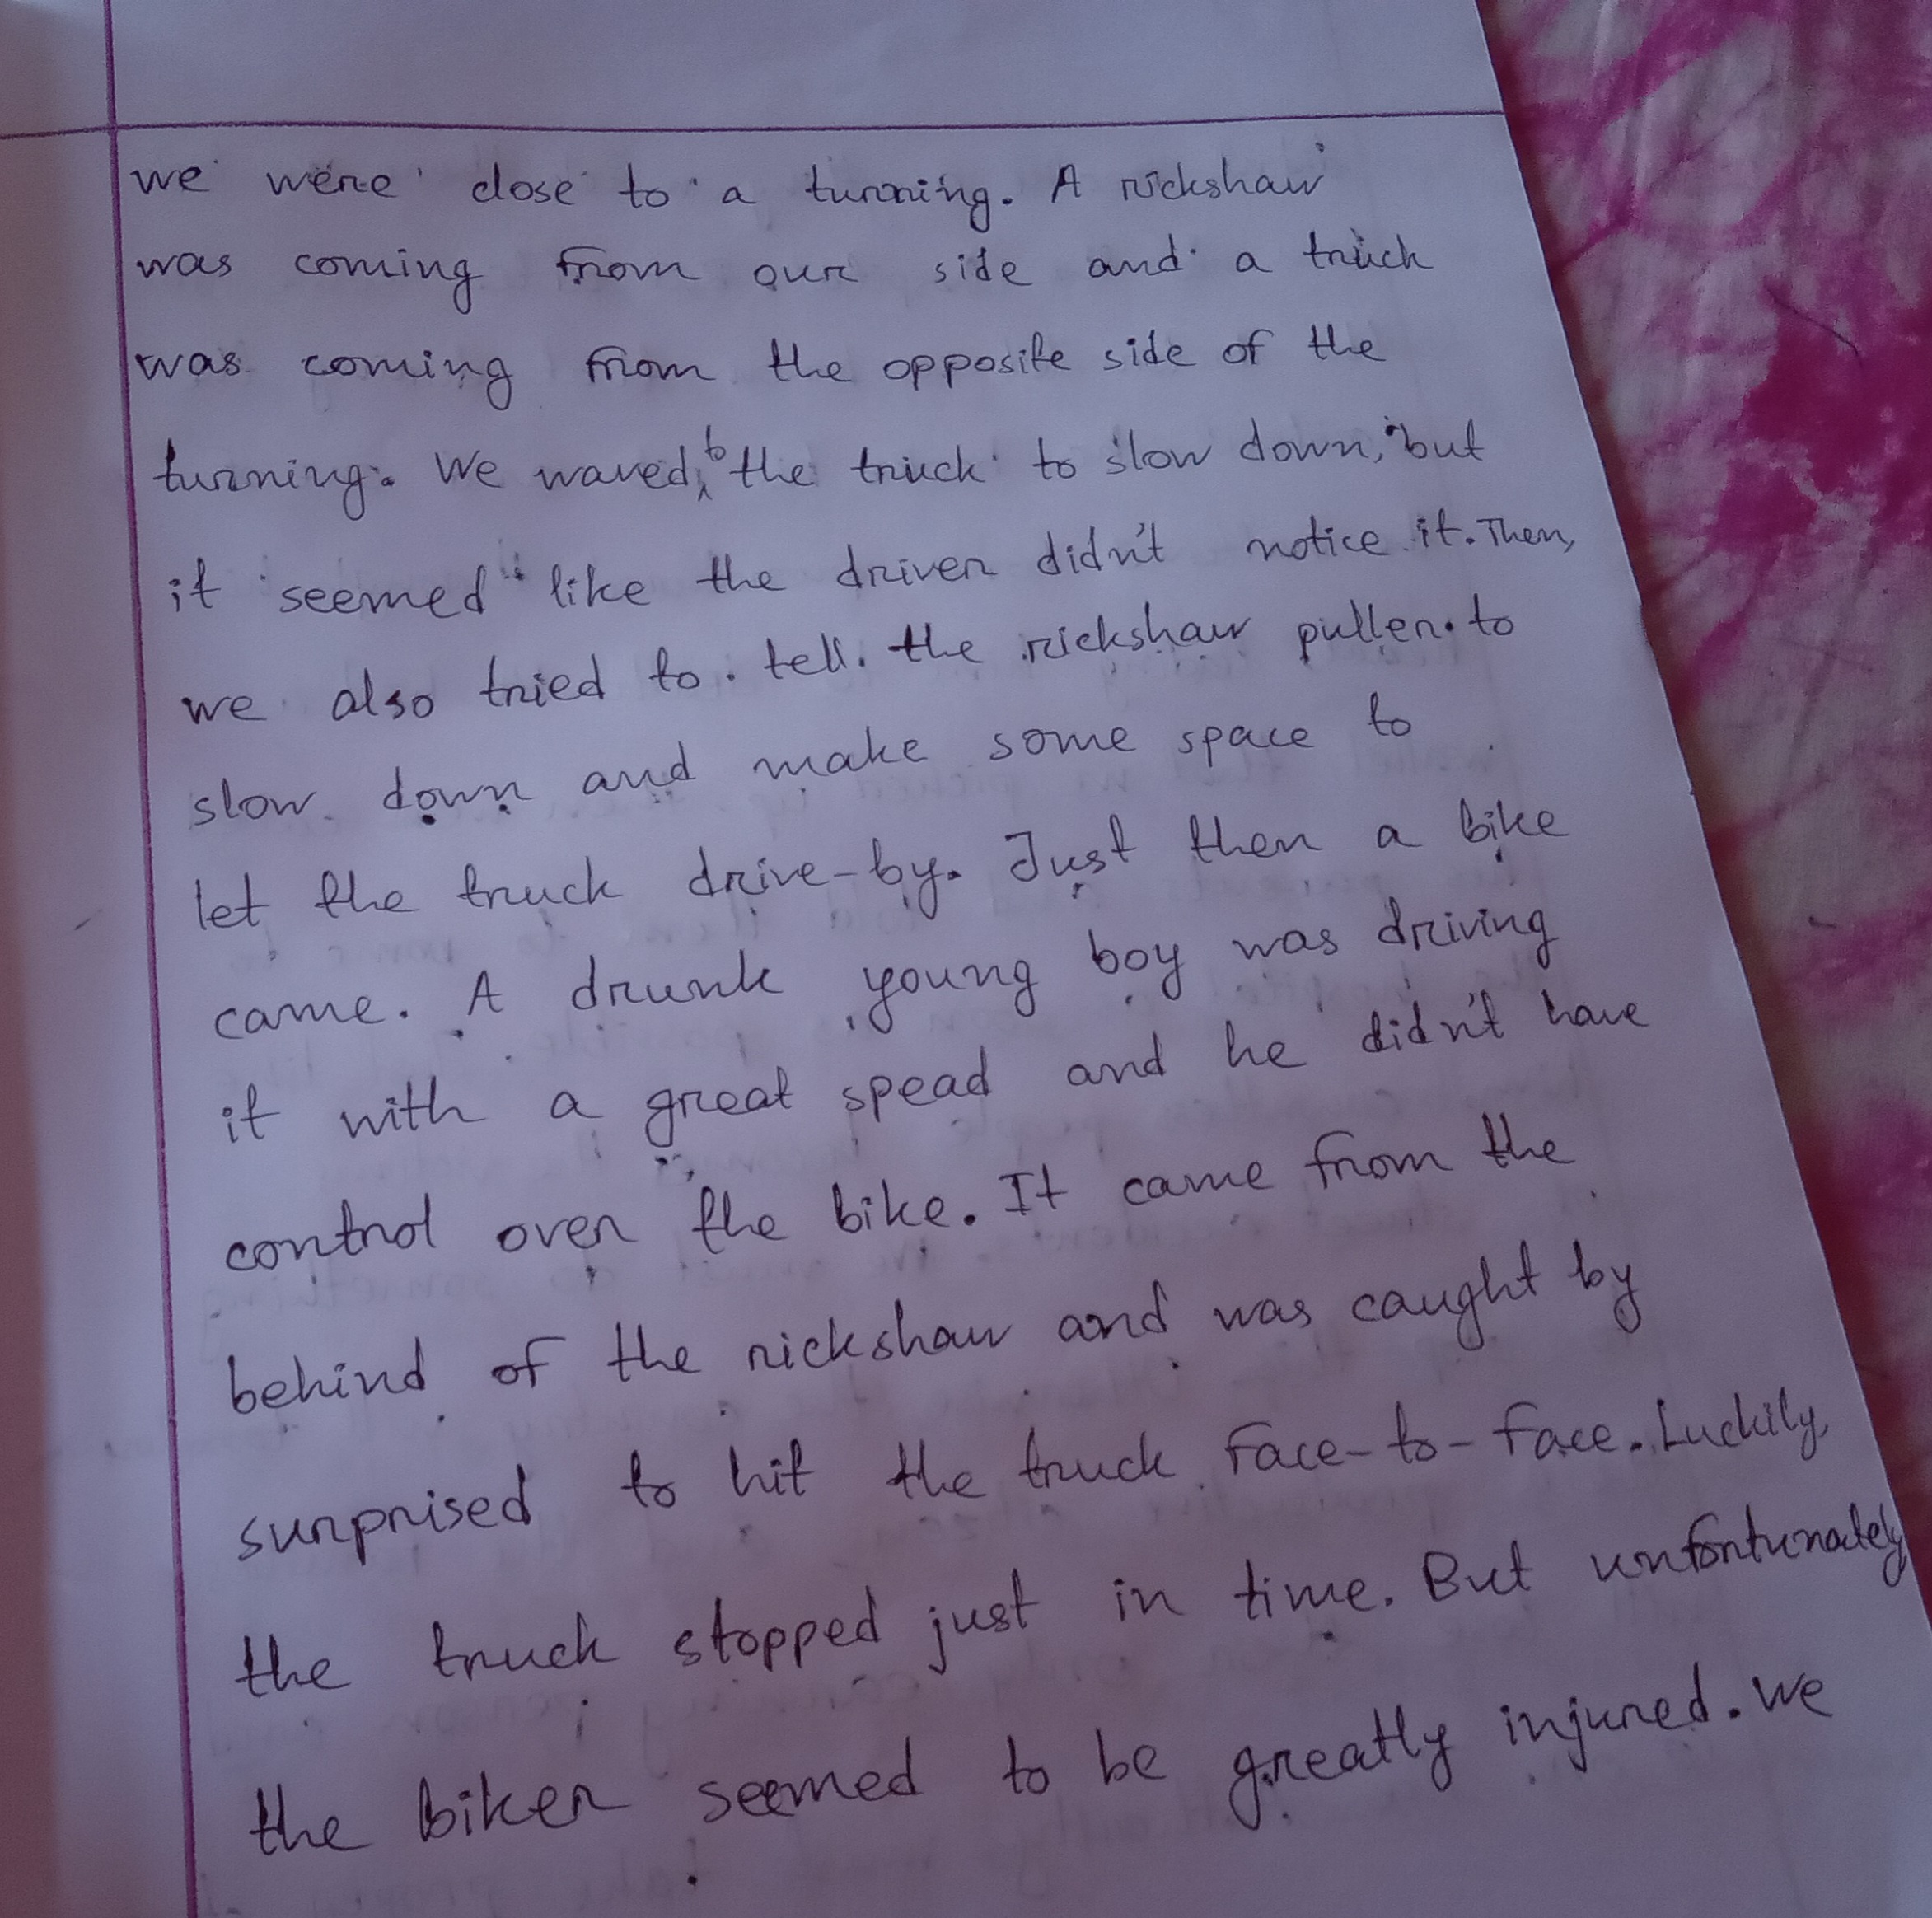 we were close to a turning. A rickshaw
was coming from our side and a truck
was coming from the opposite side of the
turning. We waved, to the truck to slow down, but
it seemed like the driver didn't notice it. Then,
we also tried to tell the rickshaw puller to
slow down and make some space to
let the truck drive-by. Just then a bike
came. A drunk young boy was driving
it with a great spead and he didn't have
control over the bike. It came from the
behind of the rickshaw and was caught by
surprised to hit the truck face-to-face. Luckily,
the truck stopped just in time. But unfortunately
the biker seemed to be greatly injured. We